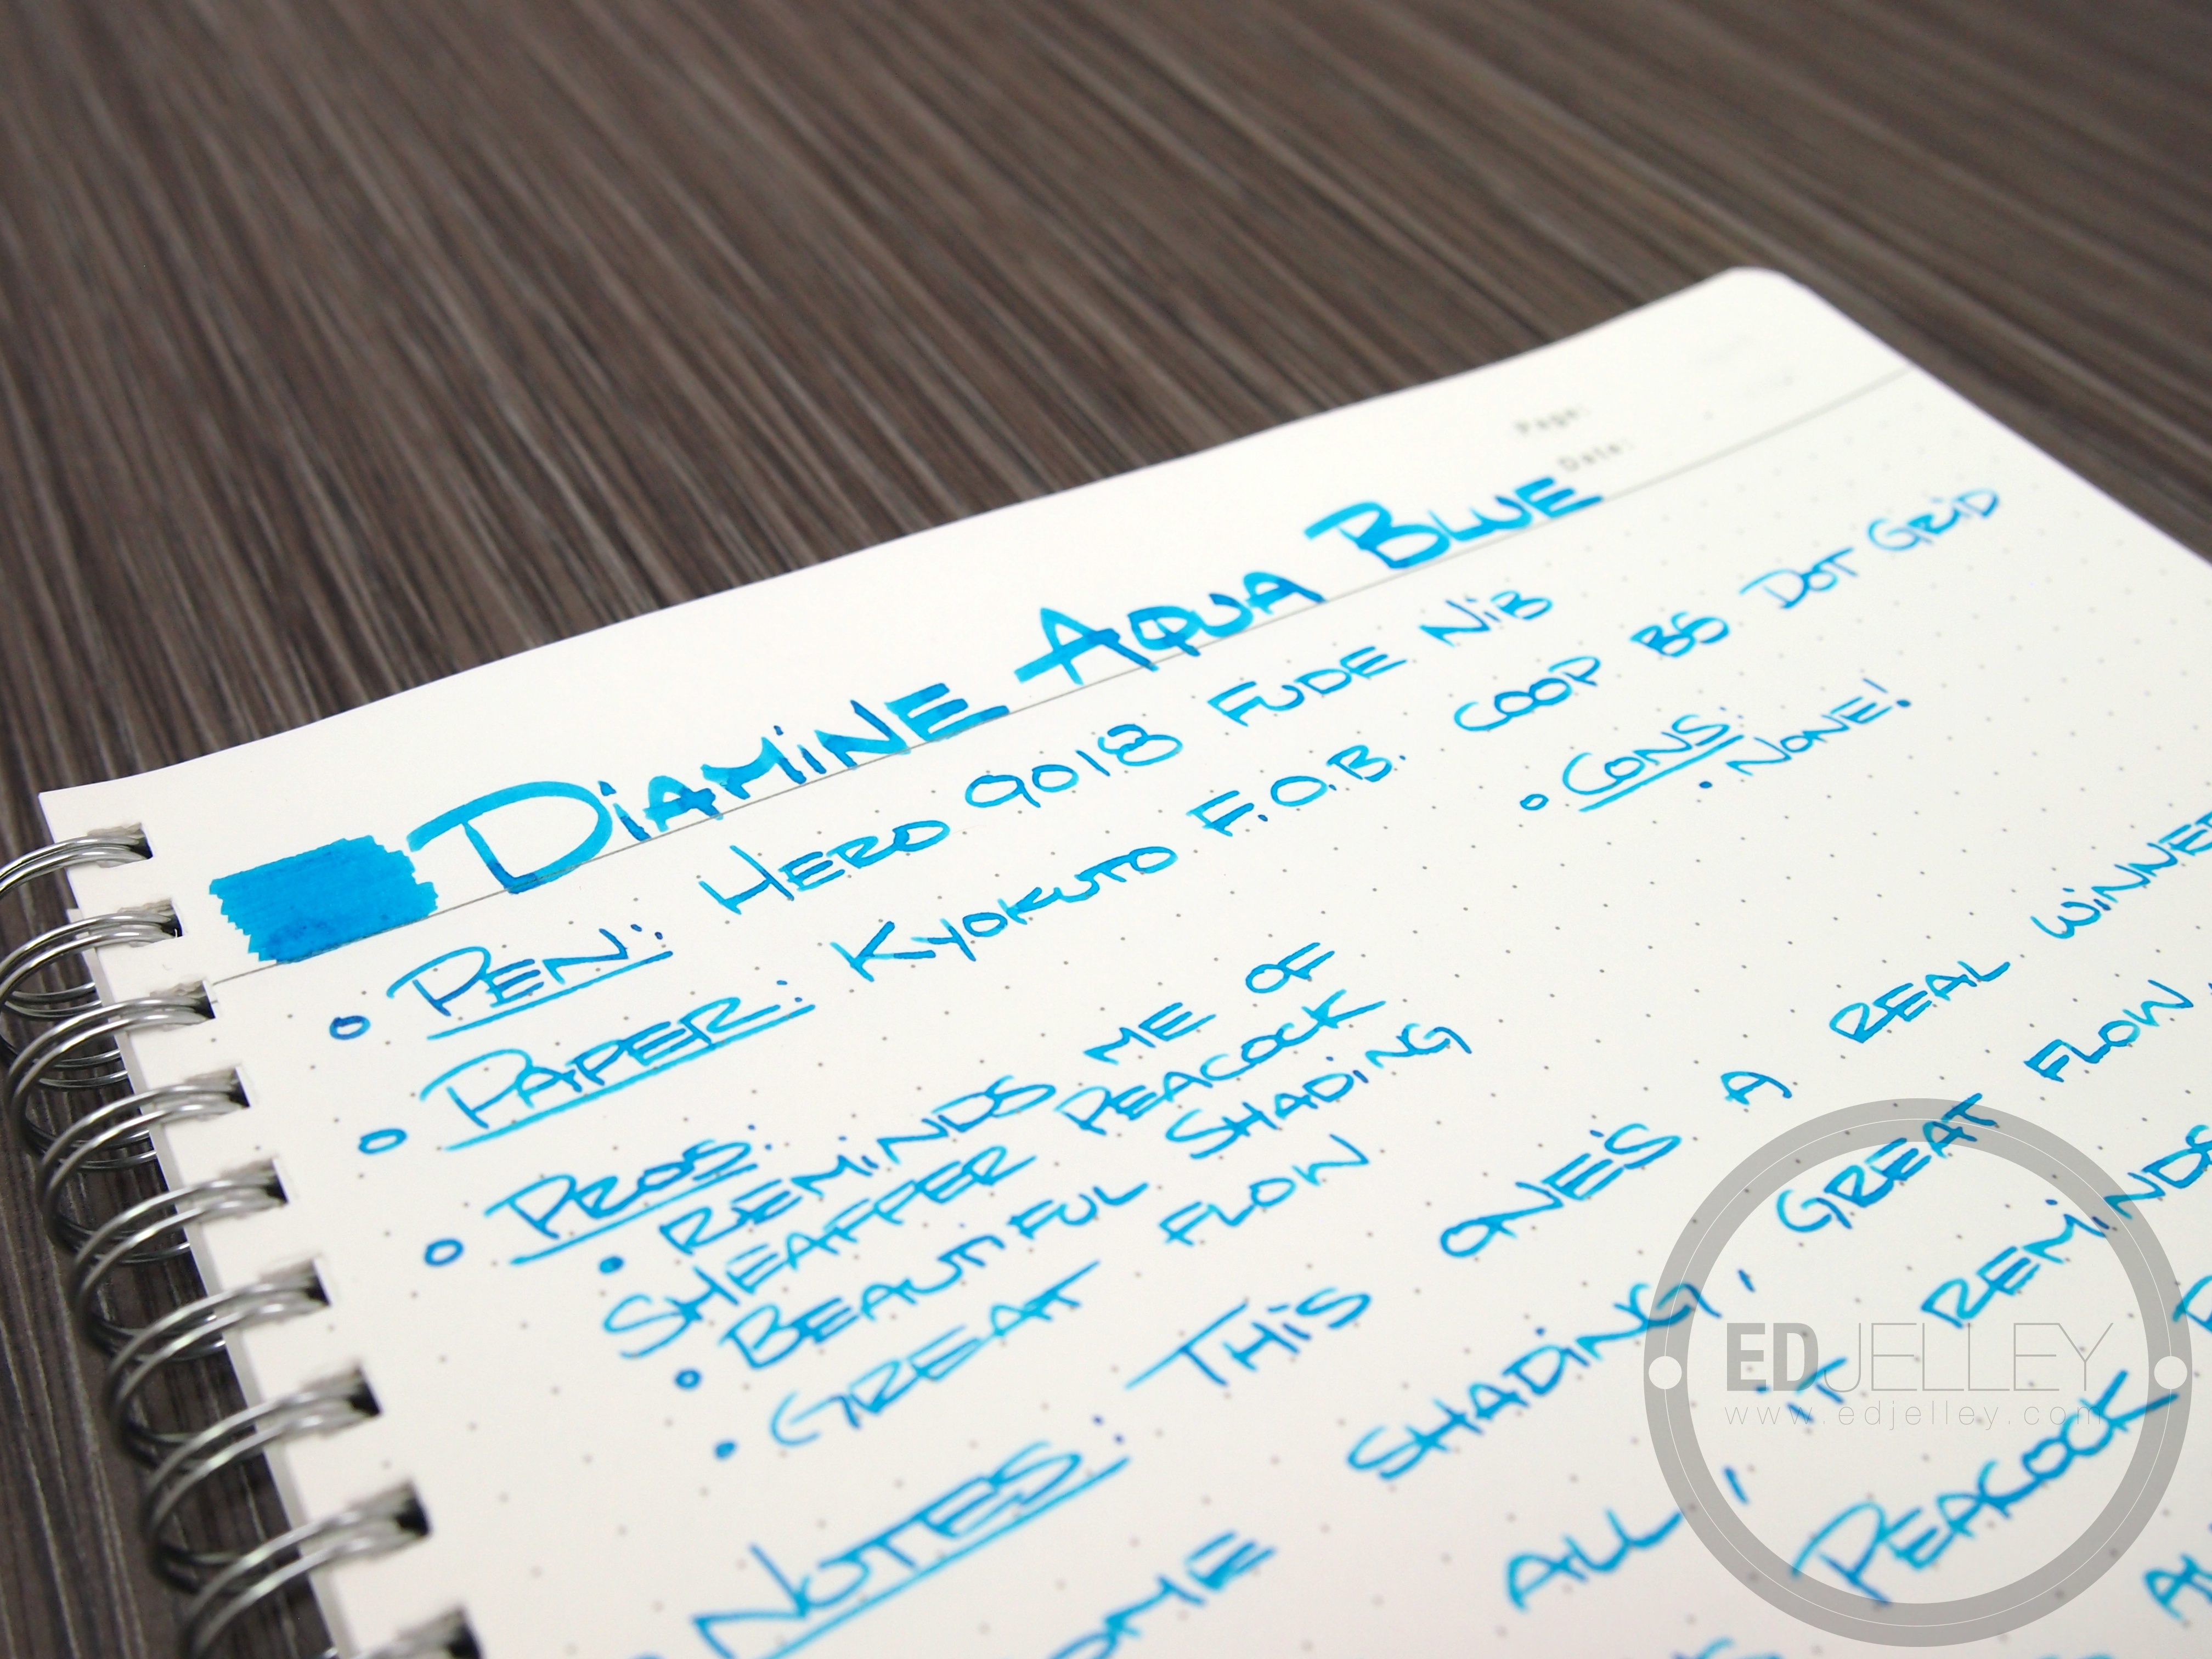 Page:
Date:
DIAMINE AQUA BLUE
PEN: HERO 9018 FUDE NIB
PAPER: KYOKUTO F.O.B. COOP B5 DOT GRID
PROS:
REMINDS ME OF
SHEAFFER PEACOCK
BEAUTIFUL SHADING
GREAT FLOW
CONS:
NONE!
NOTES: THIS ONE'S A REAL WINNER
SHADING, GREAT FLOW
ALL, IT REMINDS
PEACOCK
EDJELLEY
www.edjelley.com